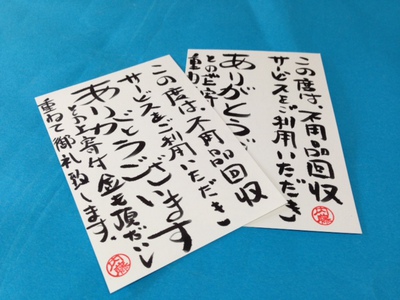 この度は、不用品回収
サービスをご利用いただき
ありがとうございます
その上寄付金を頂だいし
重ねて御礼致します。
この度は、不用品回収
サービスをご利用いただき
ありがとうご
その上寄
重ね